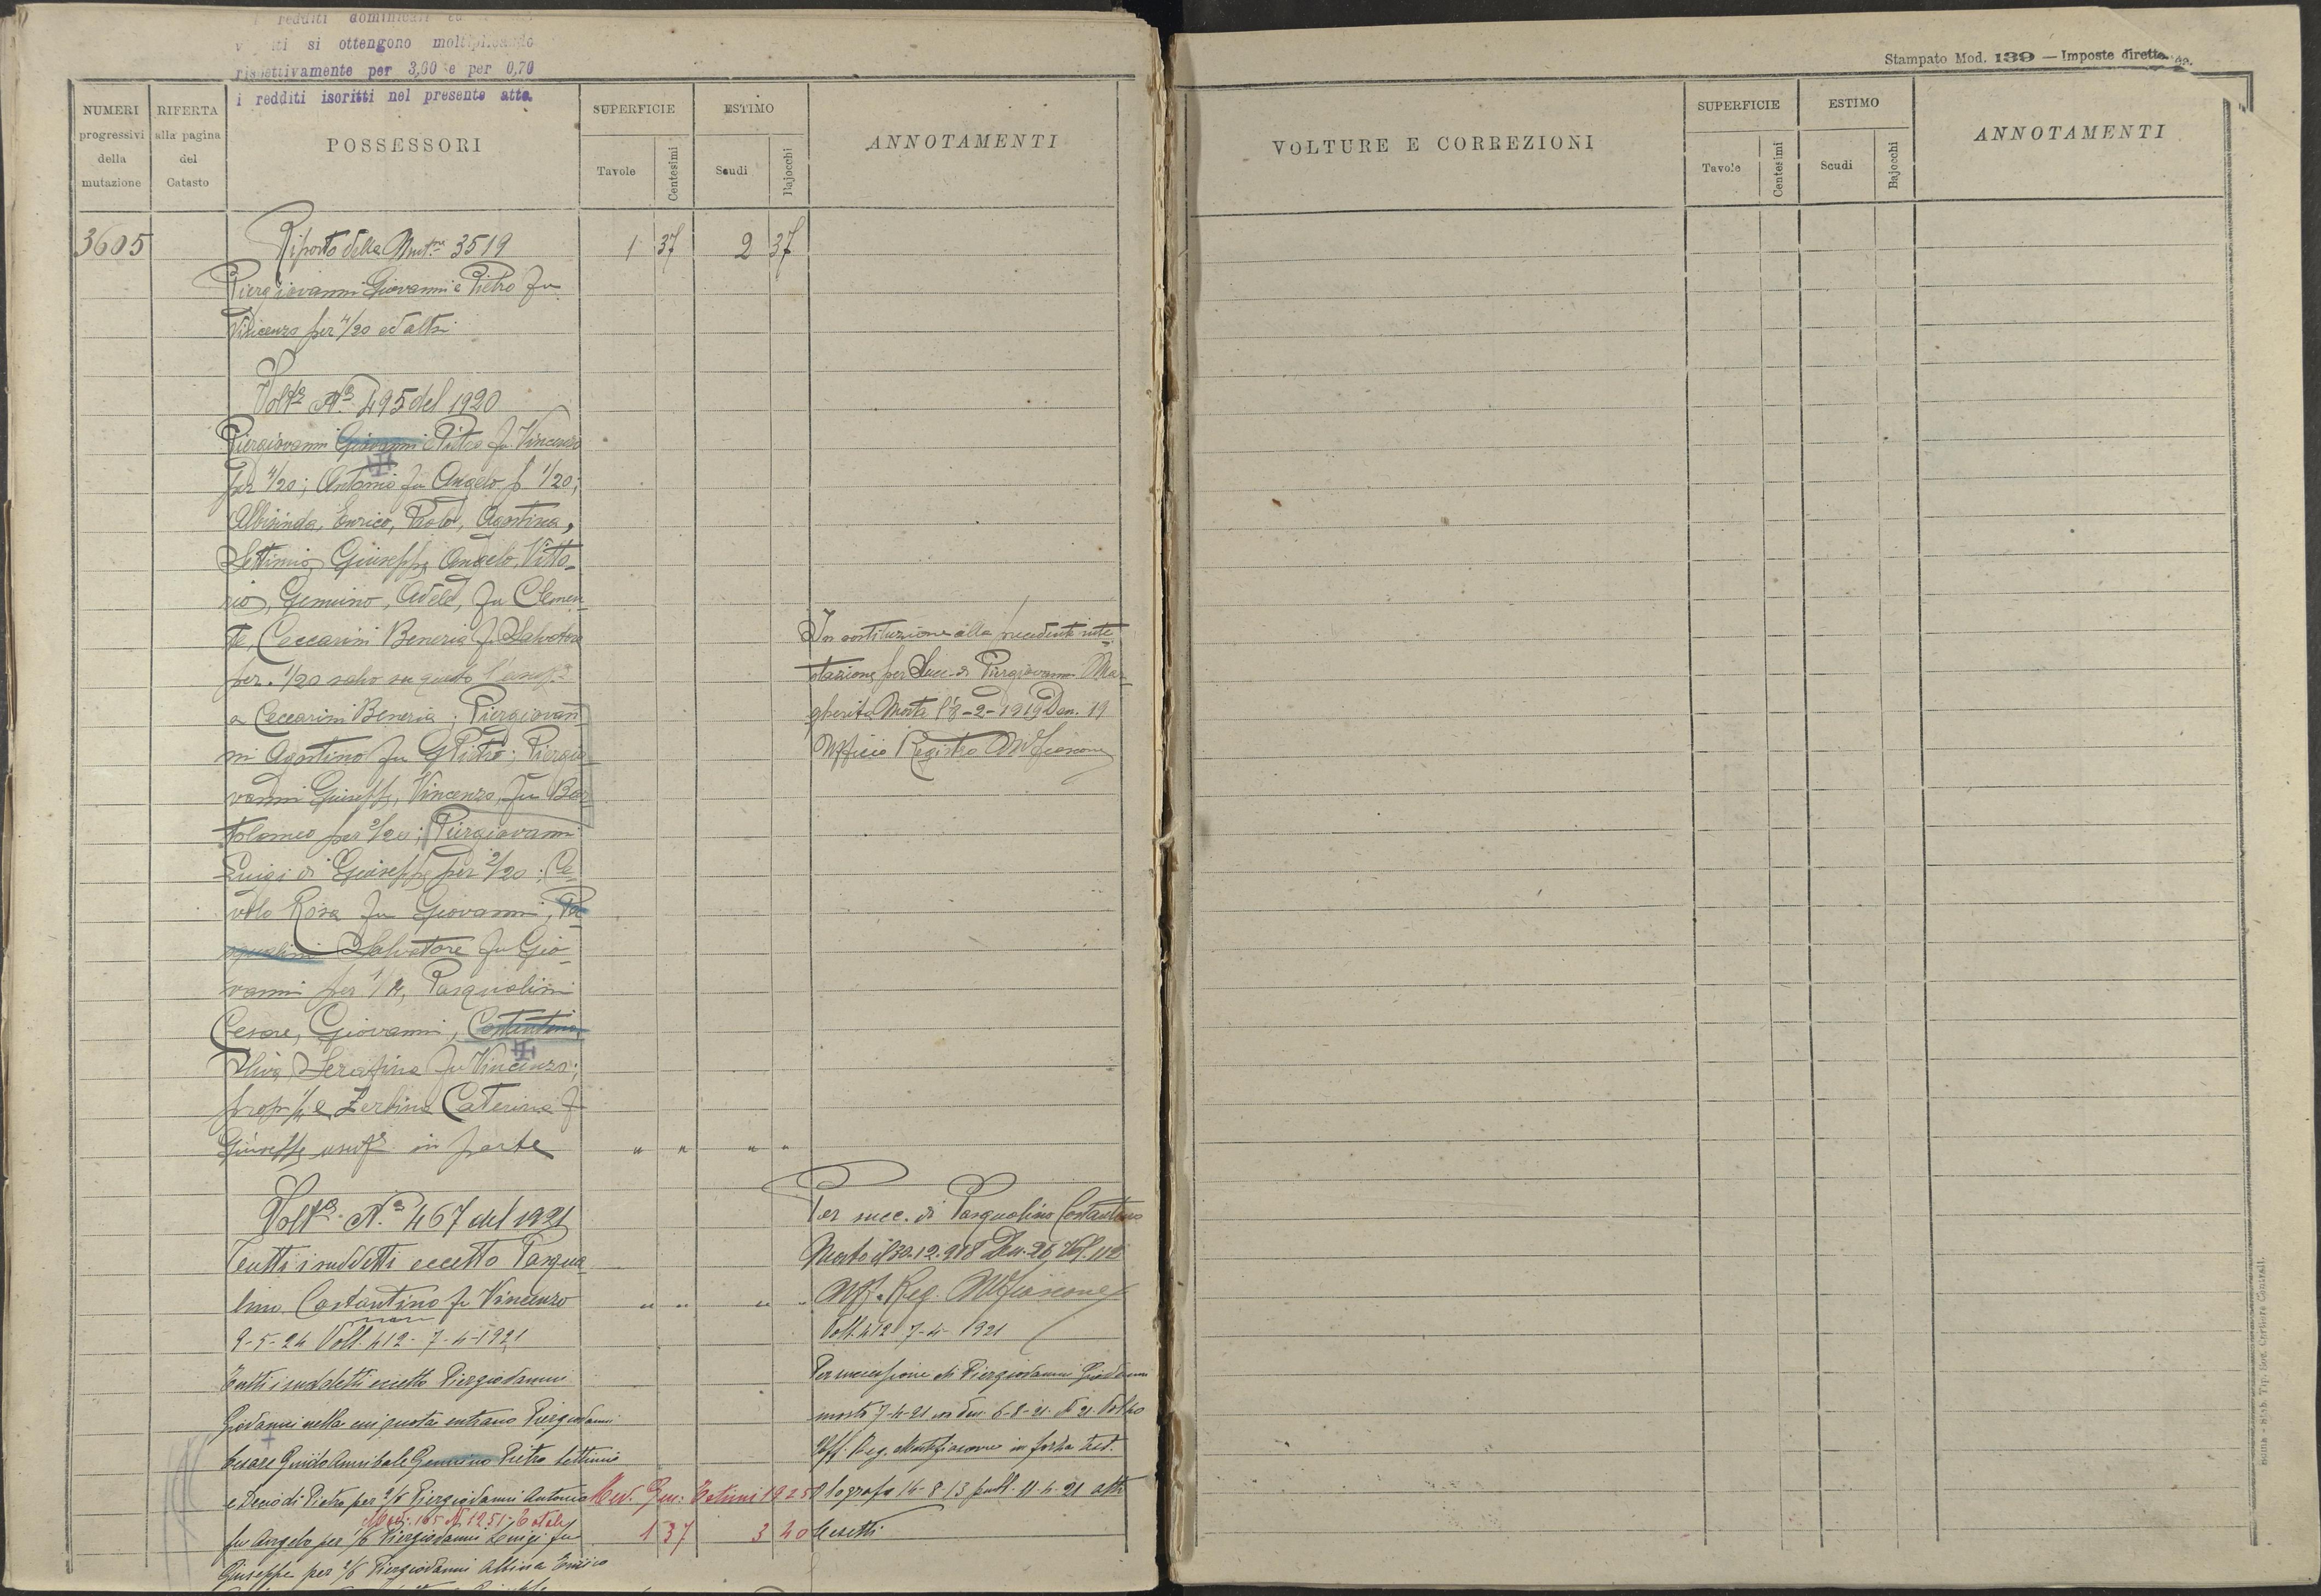 i redditi dominicali
si ottengono moltiplicando
rispettivamente per 3,60 e per 0,70
i redditi iscritti nel presente atto.
NUMERI progressivi della mutazione
RIFERTA alla pagina del Catasto
POSSESSORI
SUPERFICIE
Tavole
Centesimi
ESTIMO
Scudi
Bajocchi
ANNOTAMENTI
3605
Riporto della Mut.ne 3519
1 37 2 37
Piergiovanni Giovanni e Pietro fu
Vincenzo per 4/20 ed altri
Volt.a N.o 495 del 1920
Piergiovanni Giovanni Pietro fu Vincenzo
per 4/20; Antonio fu Angelo p 1/20;
Albisinda, Enrico, Paolo, Agostina,
Settimio, Giuseppe, Angelo, Vitto-
rio, Gemino, Adele, fu Clemen-
te, Ceccarini Beneria fu Salvatore
per 1/20 salvo su questo l'usuf.
a Ceccarini Beneria; Piergiovan-
ni Agostino fu Pietro; Piergio-
vanni Giuseppe, Vincenzo, fu Bar-
tolomeo per 2/20; Piergiovanni
Luigi di Giuseppe per 2/20; Ce-
volo Rosa fu Giovanni, Pa-
squalini Salvatore fu Gio-
vanni per 1/4, Pasqualini
Cesare, Giovanni, Costantino,
Serafina fu Vincenzo;
prop 1/4 e Zerbino Caterina f
Giuseppe usuf in parte
" " " "
In sostituzione alla precedente inte-
stazione per Succ. di Piergiovanni Mar-
gherita Morta l'8-2-1919 Den. 19
Ufficio Registro M Fiascone
Volt.a N.o 467 del 1921
Tutti i suddetti eccetto Pasqua-
lino Costantino fu Vincenzo
" " " "
Per succ. di Pasqualino Costantino
Morto il 30.12.918 Den. 26 Vol. 112
Uff. Reg. M Fiascone
9-5-24 Volt. 412 - 7-4-1921
Volt. 412 7-4-1921
Tutti i suddetti eccetto Piergiovanni
Giovanni nella cui quota entrano Piergiovanni
Cesare Guido Annibale Gemino Pietro Settimio
e Decio di Pietro per 2/6 Piergiovanni Antonio
fu Angelo per 1/6 Piergiovanni Luigi fu
Giuseppe per 2/6 Piergiovanni Albina Enrico
Per successione di Piergiovanni Giovanni
morto 7-4-21 den 6-8-21
Uff. Reg. Montefiascone in forza test.
Olografo 14-8-13 pubb. 11-4-21 atti
Cesetti
Rev. Gen: Estimi 1925
Mod: 165 N 1251: Totale
1 37 3 40
Stampato Mod. 139 — Imposte dirette.
VOLTURE E CORREZIONI
SUPERFICIE
Tavole
Centesimi
ESTIMO
Scudi
Bajocchi
ANNOTAMENTI